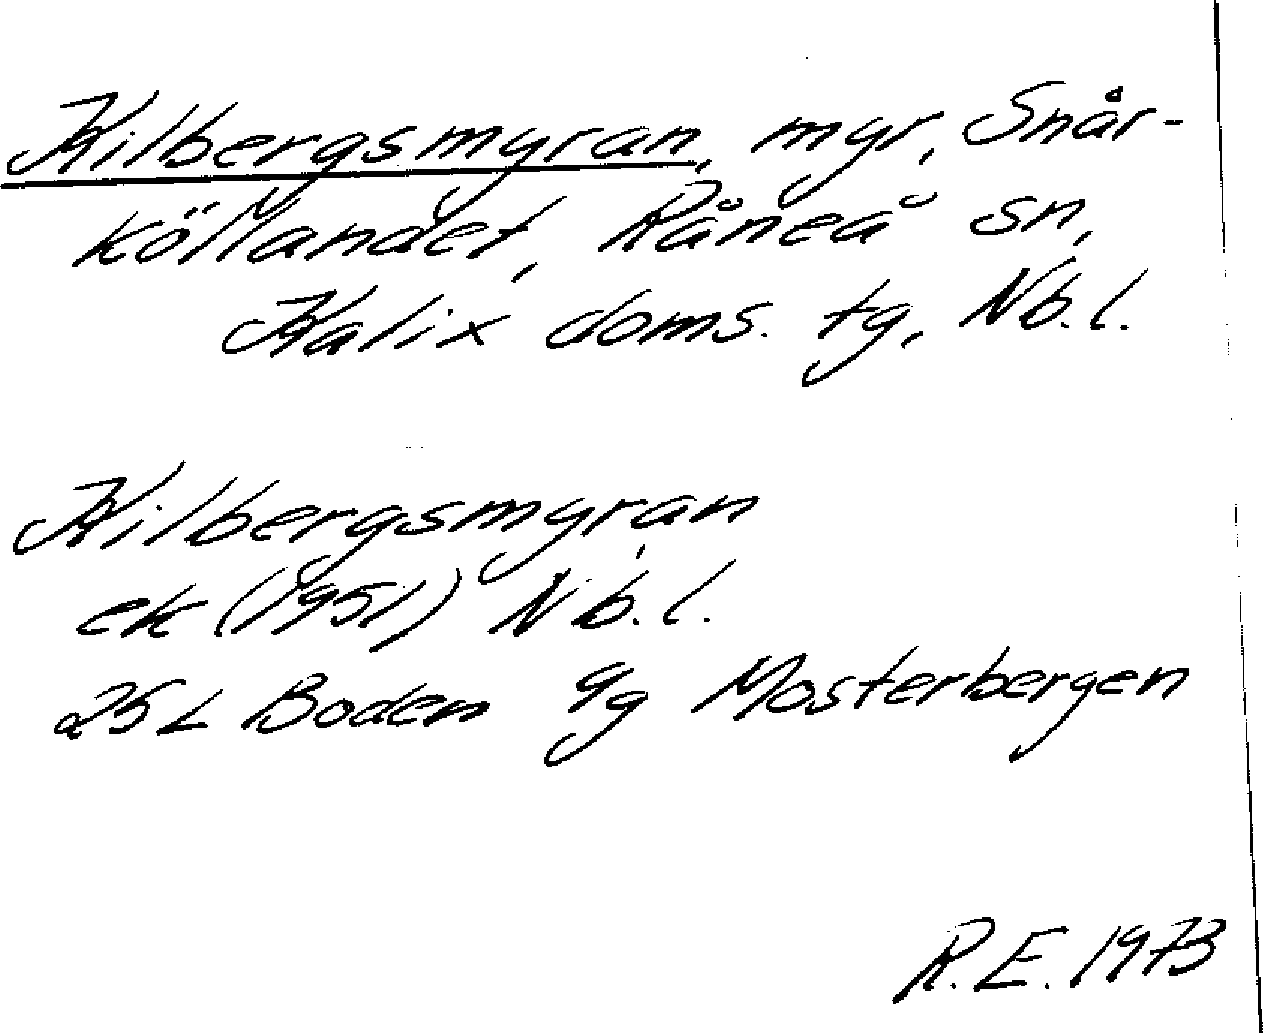 Kilbergsmyran, myr, Snår-
köllandet, Råneå sn,
Kalix doms. tg, Nb.l.
Kilbergsmyran
ek (1951) Nb.l.
25L Boden 9g Mosterbergen
R.E. 1973